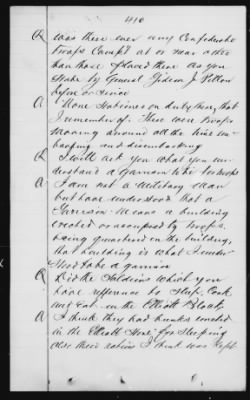 410
Q Was there ever any Confederate
troops Camp'd at or near other
than those placed there as you
state by General Gideon J Pillow
before or since
A None Stationed on duty there, that
I remember of. There were troops
moving around all the time em-
barking and disembarking
Q I will ask you what you un-
derstand a Garrison to be for troops
A I am not a Military Man
but have understood that a
Garrison means a building
erected or occupied by troops,
being quartered in the building,
that building is what I under-
stood to be a garrison
Q Did the Soldiers which you
have reference to Sleep, Cook
and Eat in the Elliott Block
A I think they had bunks erected
in the Elliott Store for Sleeping
also their rations I think was kept